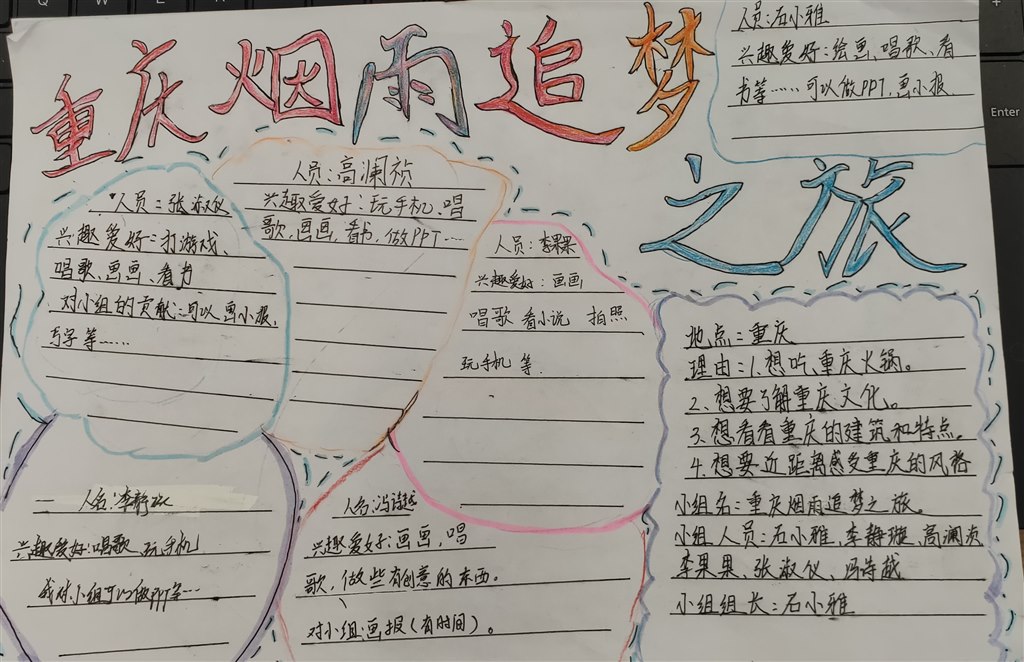 重庆烟雨追梦
之旅
人员:石小雅
兴趣爱好:绘画、唱歌、看
书等……可以做PPT,画小报.
人员:张淑仪
兴趣爱好:打游戏、
唱歌、画画、看书
对小组的贡献:可以画小报,
写字等……
人员:高澜祯
兴趣爱好:玩手机、唱
歌、画画、看书、做PPT……
人员:李果果
兴趣爱好:画画
唱歌 看小说 拍照
玩手机 等.
地点:重庆
理由:1.想吃重庆火锅。
2、想要了解重庆文化。
3、想看看重庆的建筑和特点。
4.想要近距离感受重庆的风格
小组名:重庆烟雨追梦之旅。
小组人员:石小雅,李静璇,高澜贞
李果果、张淑仪、冯诗越
小组组长:石小雅
人名:李静
兴趣爱好:唱歌 玩手机
我对小组可以做PPT……
人名:冯诗越
兴趣爱好:画画,唱
歌、做些有创意的东西。
对小组画报(有时间)。
Enter